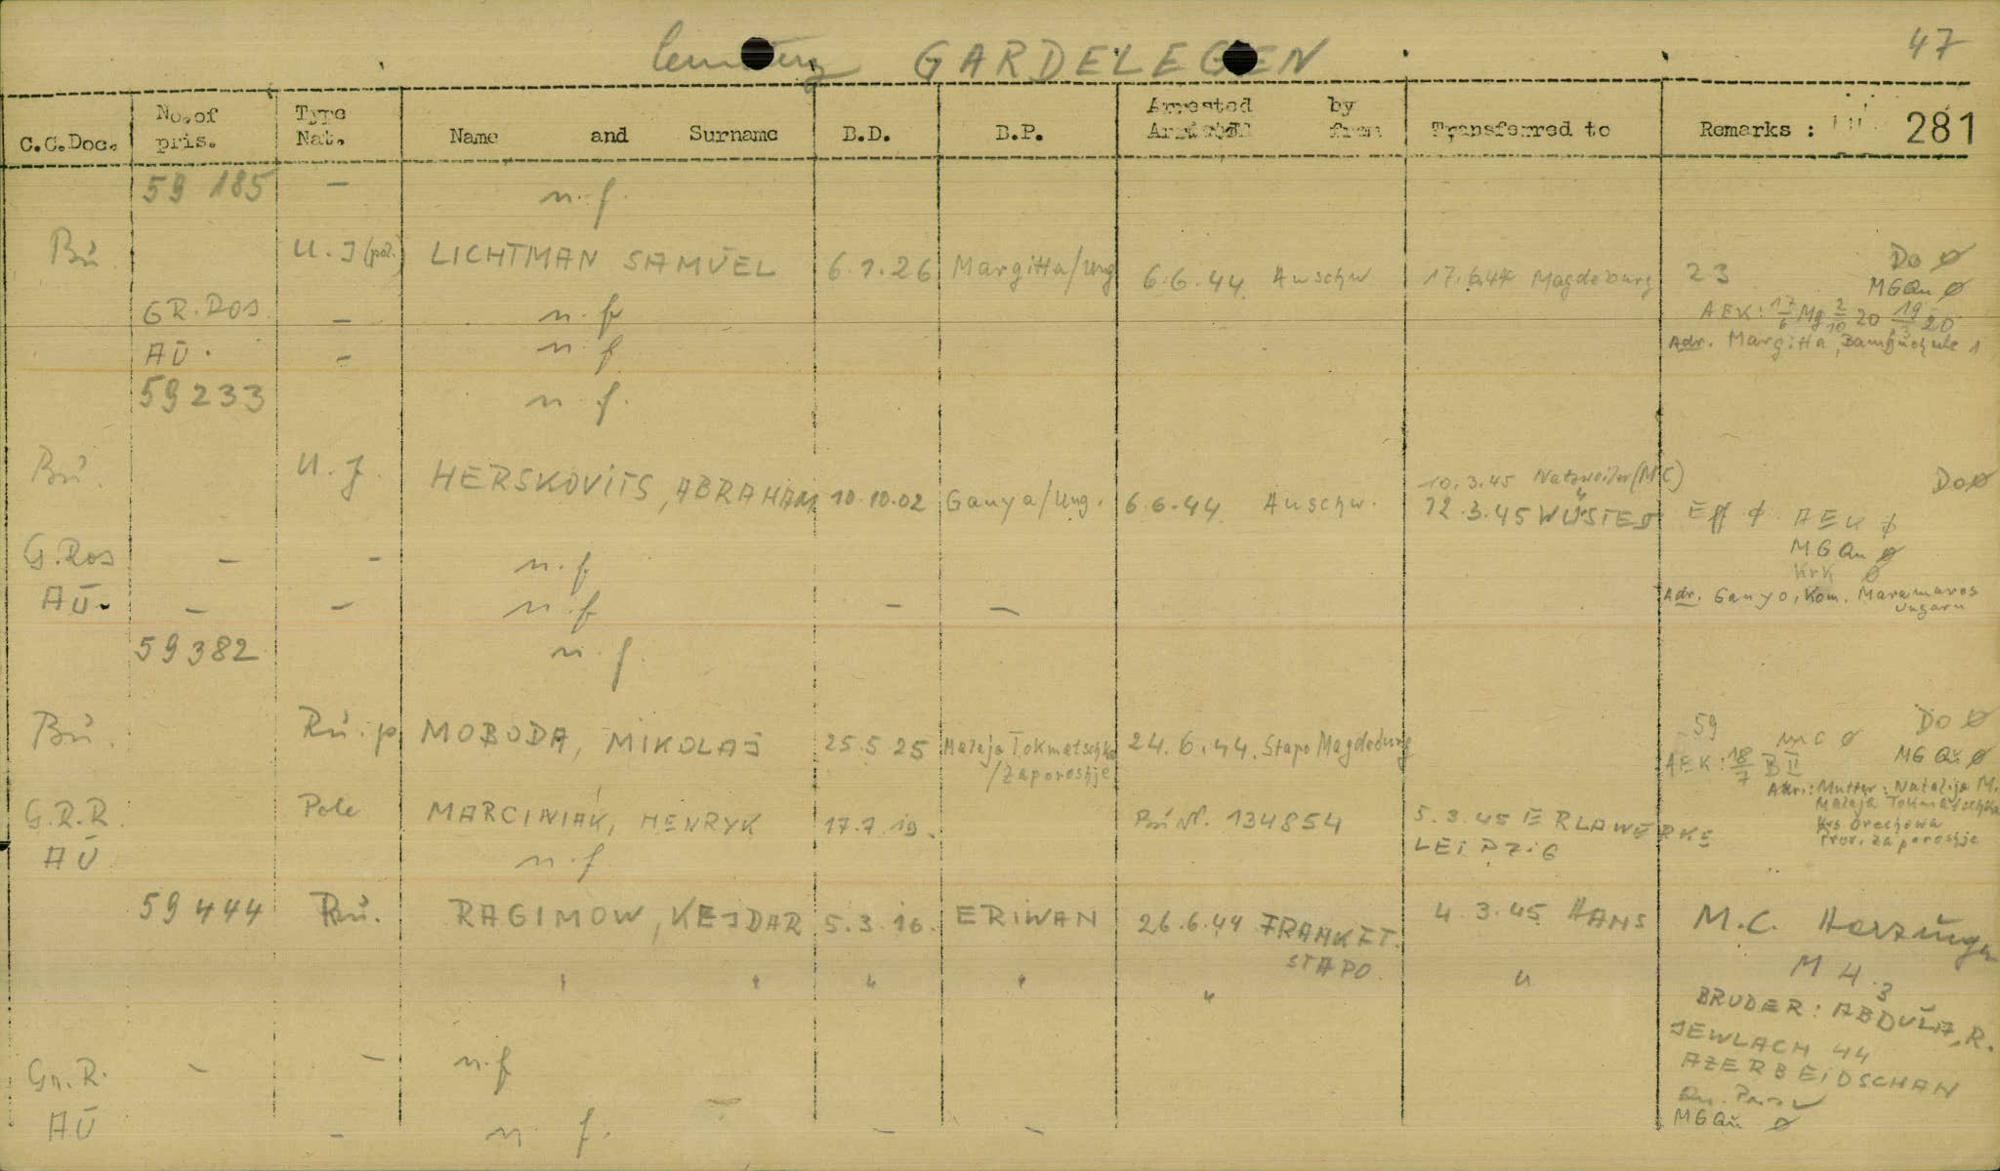 Cemetery GARDELEGEN 47
C.C.Doc. No.of pris. Type Nat. Name and Surname B.D. B.P. Arrested by from Transferred to Remarks : 281
59 185 – n.f.
Bu. U.J (pol.) LICHTMAN SAMUEL 6.1.26 Margitta/Ung 6.6.44 Auschw 17.6.44 Magdeburg 23 Do Ø
MGQu Ø
GR.ROS – n.f. AEK: 17/6 Mg 2/10 20 19/3 20
AU. – n.f. Adr. Margitta,
59233 n.f.
Bu. U.J. HERSKOVITS, ABRAHAM 10.10.02 Ganya/Ung. 6.6.44 Auschw. 10.3.45 Natzweiler (MC) Do Ø
12.3.45 WÜSTE Eff Ø AEK Ø
G.Ros – – n.f. MGQu Ø
KrK Ø
AU. – – n.f. – – Adr. Ganyo, Kom. Maramaros
Ungarn
59382 n.f.
Bu. Ru.p MOBODA, MIKOLAJ 25.5.25 Malaja Tokmatschka
/Zaporoshje 24.6.44. Stapo Magdeburg 59 MC Ø Do Ø
AEK: 18/7 B II MGQu Ø
Adr.: Mutter: Natalija M.
Malaja Tokmatschka
Krs. Orechowa
Prov. Zaporoshje
G.R.R. Pole MARCINIAK, HENRYK 17.7.19. Bu Nr. 134854 5.3.45 ERLAWERKE
LEIPZIG
AU n.f.
59444 Ru. RAGIMOW, KEJDAR 5.3.16. ERIWAN 26.6.44 FRANKFT.
STAPO. 4.3.45 HANS M.C. Harzungen
" " " " " " M 4.3
BRUDER: ABDULA, R.
JEWLACH 44
AZERBEIDSCHAN
Gr.R. – – n.f
AU – n.f. – – MGQu Ø